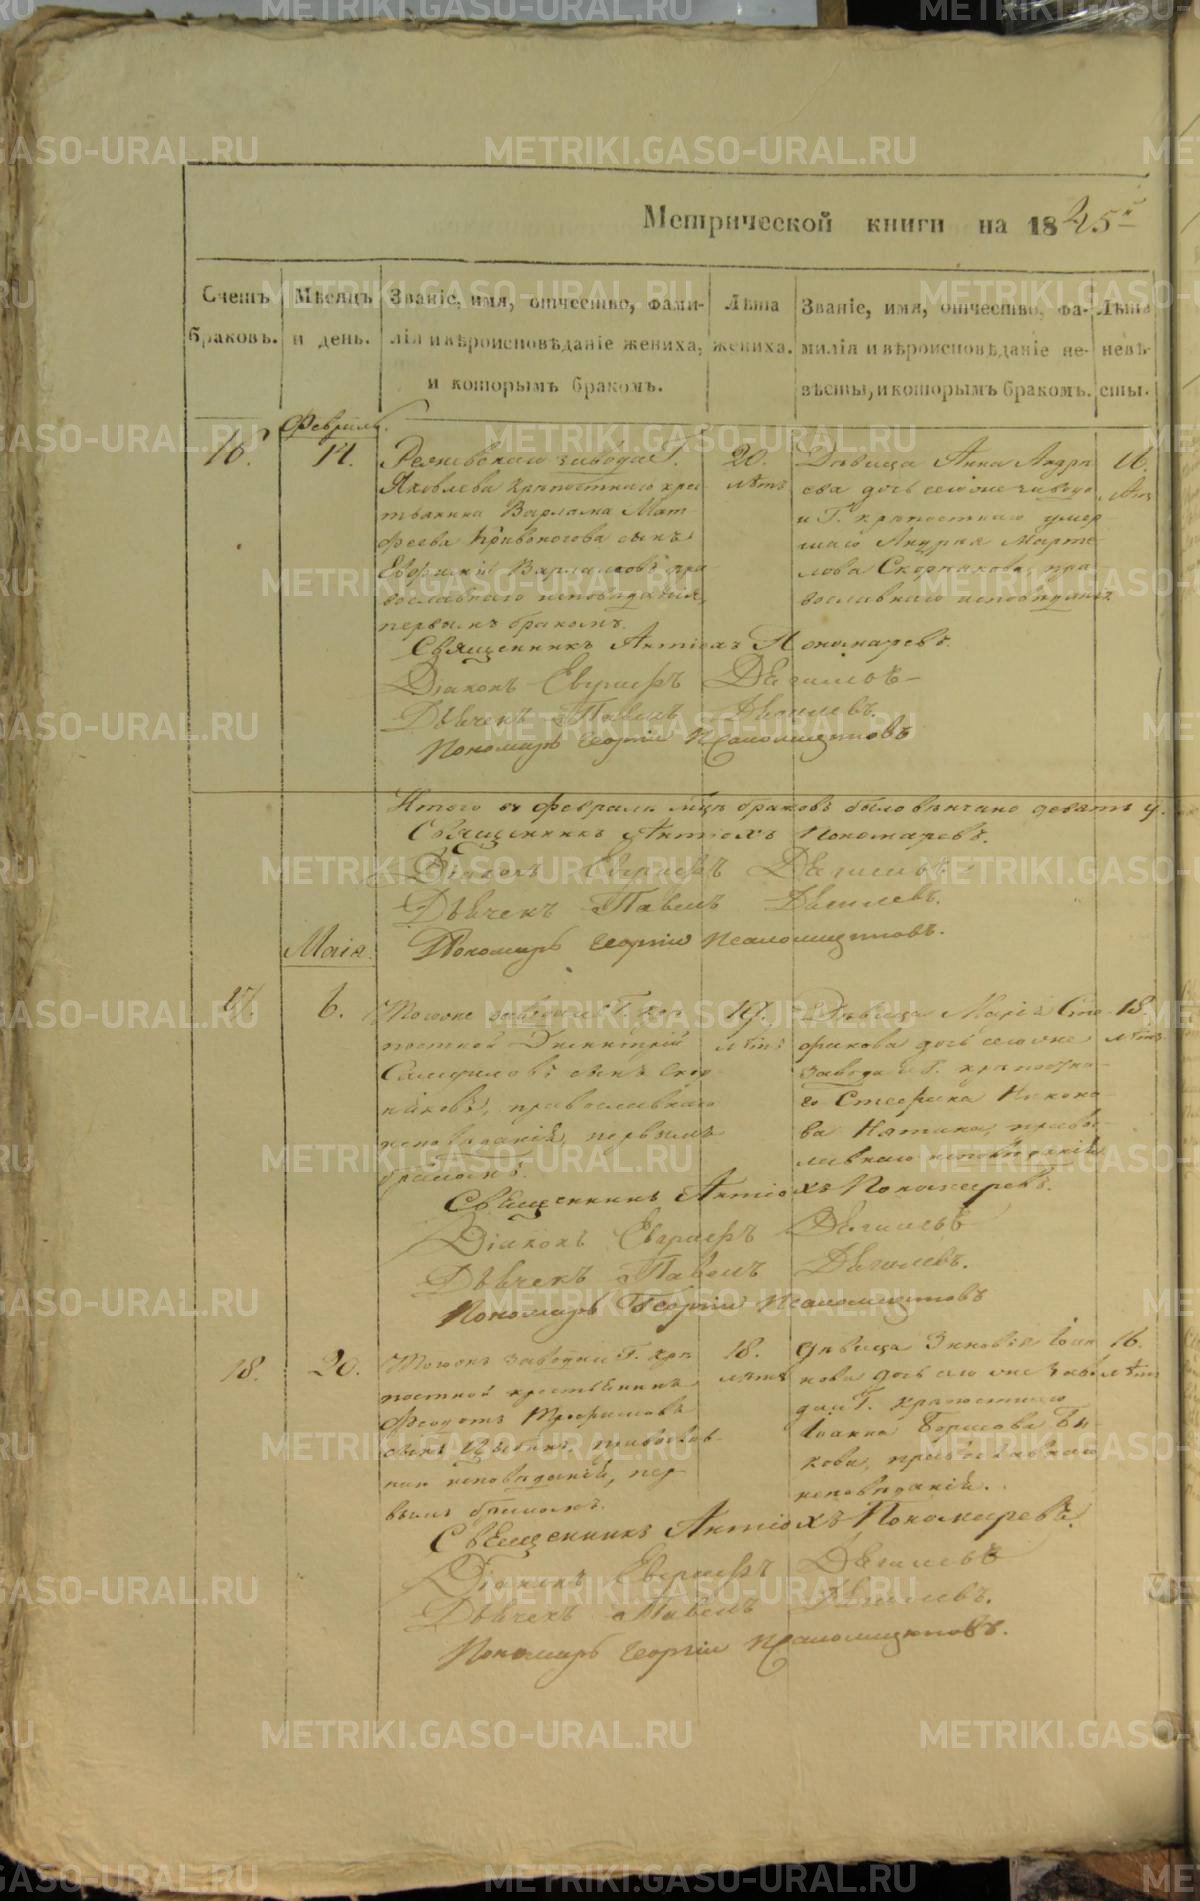 METRIKI.GASO-URAL.RU
Метрической книги на 1845й
Счетъ браковъ.
Мѣсяцъ и день.
Званіе, имя, отчество, фами-
лія и вѣроисповѣданіе жениха,
и которымъ бракомъ.
Лѣта жениха.
Званіе, имя, отчество, фа-
милія и вѣроисповѣданіе не-
вѣсты, и которымъ бракомъ.
Лѣта невѣ-
сты.
Февраль.
16.
14.
завода Г.
Яковлева крѣпостнаго крес
тьянина Варлама Мат
феева Кривоногова сынъ
Варламовъ пра
вославнаго исповѣданія,
первымъ бракомъ.
20.
лѣтъ
Дѣвица Анна Андре
ева дочь того же завода
и Г. крѣпостнаго умер
шаго Андрея Марте
Скорнякова, пра
вославнаго исповѣданія.
Священникъ Антіохъ Пономаревъ.
Діаконъ
Дьячекъ Павелъ
Пономарь Георгій Псаломщиковъ
Итого въ Февралѣ мцѣ браковъ было вѣнчано девять 9.
Священникъ Антіохъ Пономаревъ.
Діаконъ
Дьячекъ Павелъ
Пономарь Георгій Псаломщиковъ.
Маія.
17.
6.
Тогоже завода и Г. крѣ
постной Димитрій
сынъ Скор
няковъ, православнаго
исповѣданія, первымъ
бракомъ.
19.
лѣтъ
Дѣвица Марія Сте
фанова дочь того же
завода и Г. крѣпостна-
го Стефана Никоно-
ва православ
лавнаго исповѣданія
18.
лѣтъ
Священникъ Антіохъ Пономаревъ.
Діаконъ
Дьячекъ Павелъ
Пономарь Георгій Псаломщиковъ
18.
20.
Тогоже завода и Г. крѣ
постной крестьянинъ
Феодотъ Трофимовъ
сынъ православ-
наго исповѣданія, пер
вымъ бракомъ.
18.
лѣтъ
Дѣвица Зиновія Іоан
нова дочь того же заво
да и Г. крѣпостнаго
Іоанна Борисова Бы
кова, православнаго
исповѣданія.
16.
лѣтъ
Священникъ Антіохъ Пономаревъ.
Діаконъ
Дьячекъ Павелъ
Пономарь Георгій Псаломщиковъ.